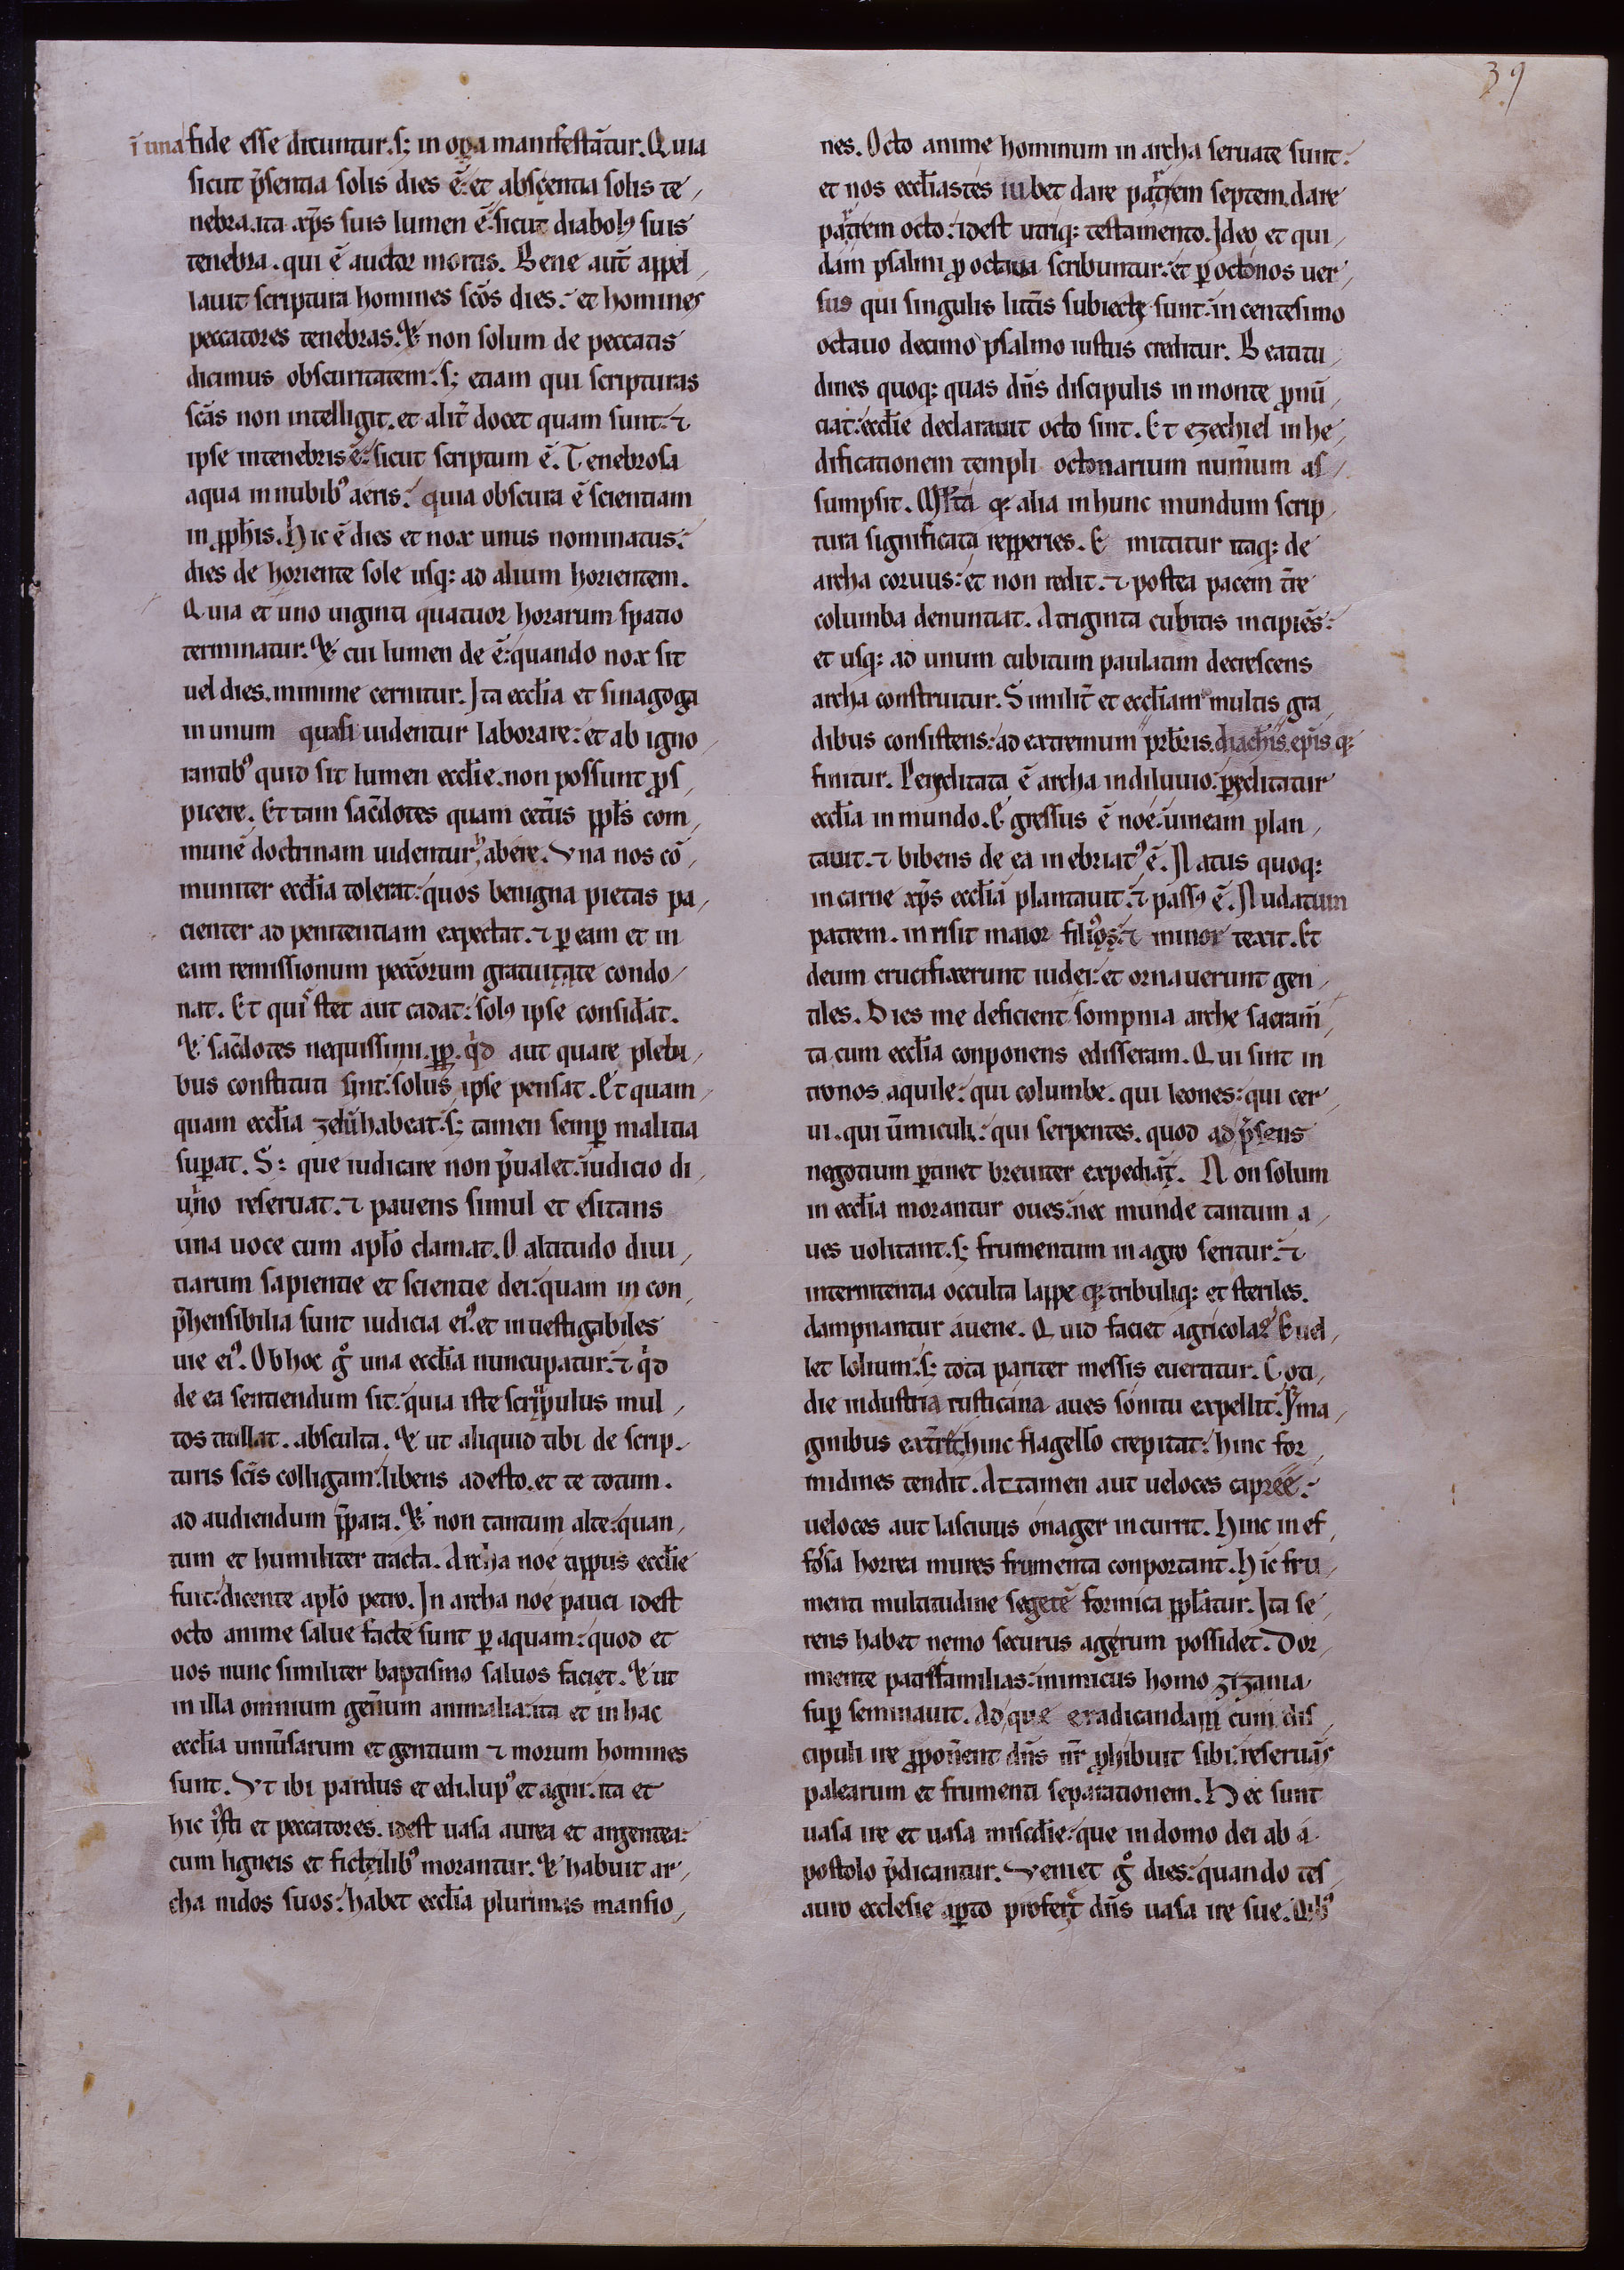 39
ī una fide esse dicuntur. s; in opa manifestāt̄ur. Quia
sicut p̄sentia solis dies ē: et absentia solis te
nebra. ita xp̄s suis lumen ē. sicut diabolꝰ suis
tenebra. qui ē auctor mortis. Bene aut̄ appel
lauit scriptura homines sc̄os dies: et homines
peccatores tenebras. Et non solum de peccatis
dicimus obscuritatem: s; etiam qui scripturas
sc̄as non intelligit. et alit̄ docet quam sunt: ⁊
ipse intenebris ē: sicut scriptum ē. Tenebrosa
aqua in nubibꝰ aeris: quia obscura ē scientiam
in ꝓph̄is. Hic ē dies et nox unus nominatus:
dies de horiente sole usq: ad alium horientem.
Quia et uno uiginti quatuor horarum spatio
terminatur. Et cui lumen de ē: quando nox sit
uel dies. minime cernitur. Ita eccl̄ia et sinagoga
in unum quasi uidentur laborare: et ab igno
rantibꝰ quid sit lumen eccl̄ie. non possunt ꝓs
picere. Et tam sac̄dotes quam cet̄us ppl̄s com
munē doctrinam uidentur habere. Una nos cō
muniter eccl̄ia tolerat: quos benigna pietas pa
cienter ad penitentiam expectat. ⁊ ꝑ eam et in
eam remissionum pecc̄orum gratuitate condo
nat. Et quis stet aut cadat: solꝰ ipse considāt.
Et sac̄dotes nequissimi. ꝓp. qͥd aut quare plebi
bus constituti sint: solus ipse pensat. Et quam
quam eccl̄ia zelū habeat: s; tamen semꝑ malitia
suꝑat. S: que iudicare non p̄ualet. iudicio di
uino reseruat. ⁊ pauens simul et esitans
una uoce cum apl̄o clamat. O altitudo diui
tiarum sapientie et scientie dei: quam in con
p̄hensibilia sunt iudicia eiꝰ. et inuestigabiles
uie eiꝰ. Ob hoc gͦ una eccl̄ia nuncupatur: ⁊ qͥd
de ea sentiendum sit: quia iste scrupulus mul
tos titillat. absculta. Et ut aliquid tibi de scrip
turis sc̄is colligam: libens adesto. et te totum.
ad audiendum p̄para. Et non tantum alte: quan
tum et humiliter tracta. Archa noe tippus eccl̄ie
fuit: dicente apl̄o petro. In archa noe pauci idest
octo anime salue facte sunt ꝑ aquam: quod et
uos nunc similiter baptismo saluos faciet. Et ut
in illa omnium gen̄um animalia: ita et in hac
eccl̄ia uniūsarum et gentium ⁊ morum homines
sunt. Ut ibi pardus et edi. lupꝰ et agni. ita et
hic iusti et peccatores. idest uasa aurea et argentea:
cum ligneis et fictilibꝰ morantur. Et habuit ar
cha nidos suos: habet eccl̄ia plurimas mansio
nes. Octo anime hominum in archa seruate sunt:
et nos eccl̄iastes iubet dare partem septem. dare
partem octo: idest utriq: testamento. Ideo et qui
dam psalmi ꝓ octaua scribuntur: et ꝑ octonos uer
sus qui singulis litt̄is subiecte sunt: in centesimo
octauo decimo psalmo iustus creditur. Beatitu
dines quoq: quas dn̄s discipulis in monte ꝓnū
ciat: eccl̄ie declarauit octo sint. Et ezechiel in he
dificationem templi octonarium num̄um as
sumpsit. Ml̄ta q: alia in hunc mundum scrip
tura significata repperies. E mittitur itaq: de
archa coruus: et non redit. ⁊ postea pacem t̄re
columba denuntiat. A triginta cubitis incipiēs:
et usq: ad unum cubitum paulatim decrescens
archa construitur. Similit̄ et eccl̄iam multis gra
dibus consistens: ad extremum prb̄ris. diach̄is. epīs. q:
finitur. Periclitata ē archa in diluuio: ꝑiclitatur
eccl̄ia in mundo. Egressus ē noe: uineam plan
tauit. ⁊ bibens de ea inebriatꝰ ē. Natus quoq:
in carne xp̄s eccl̄iā plantauit. ⁊ passꝰ ē. Nudatum
patrem. in risit maior filiꝰ. ⁊ minor texit. Et
deum crucifixerunt iudei: et ornauerunt gen
tiles. Dies me deficient sompnia arche sacram̄
ta cum eccl̄ia conponens edisseram. Qui sint in
tronos aquile: qui columbe. qui leones: qui cer
ui. qui ūmiculi: qui serpentes. quod ad p̄sens
negotium ꝑtinet breuiter expediāt. Non solum
in eccl̄ia morantur oues: nec munde tantum a
ues uolitant. s; frumentum in agro seritur. ⁊
internitentia occulta lappe q: tribuliq: et steriles.
dampnantur auene. Quid faciet agricola? Euel
let lolium: s; tota pariter messis euertitur. Coti
die industria rusticana aues sonitu expellit. Yma
ginibus ext̄ret: hinc flagello crepitat: hinc for
midines tendit. At tamen aut ueloces capree:
ueloces aut lasciuus onager incurrit. Hinc in ef
fossa horrea mures frumenta conportant. Hic fru
menti multitudine segetē formica ppl̄atur. Ita se
rens habet nemo securus agerum possidet. Dor
miente patrisfamilias: inimicus homo zizania
suꝑ seminauit. Ad que eradicandam cum dis
cipuli ire ꝓpon̄ent dn̄s nr̄ ꝓhibuit sibi: reseruās
palearum et frumenti separationem. Hec sunt
uasa ire et uasa miscd̄ie: que in domo dei ab a
postolo p̄dicantur. Veniet gͦ dies: quando tes
auro ecclesie aꝑto profert dn̄s uasa ire sue. Qibꝰ